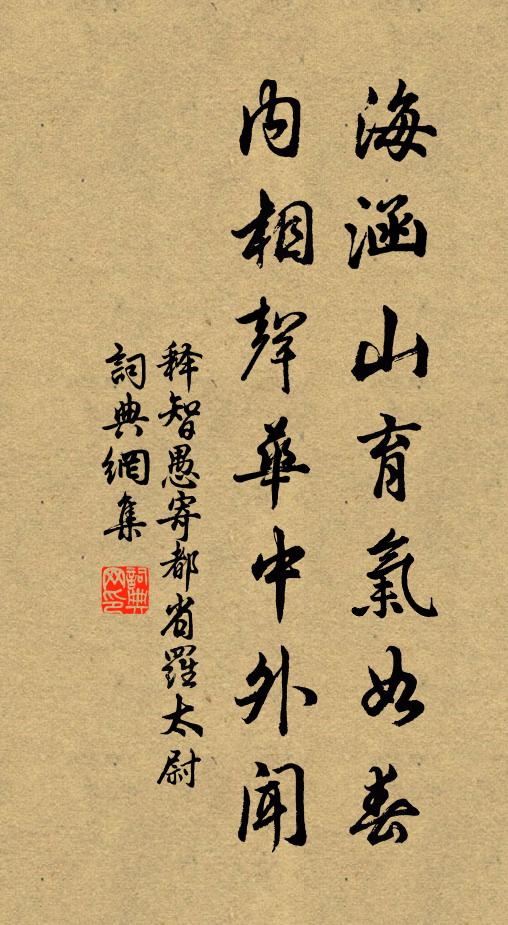 海涵山育氣如春
内相聲華中外聞
释智愚寄都省羅太尉
詞典網集
詞典网印